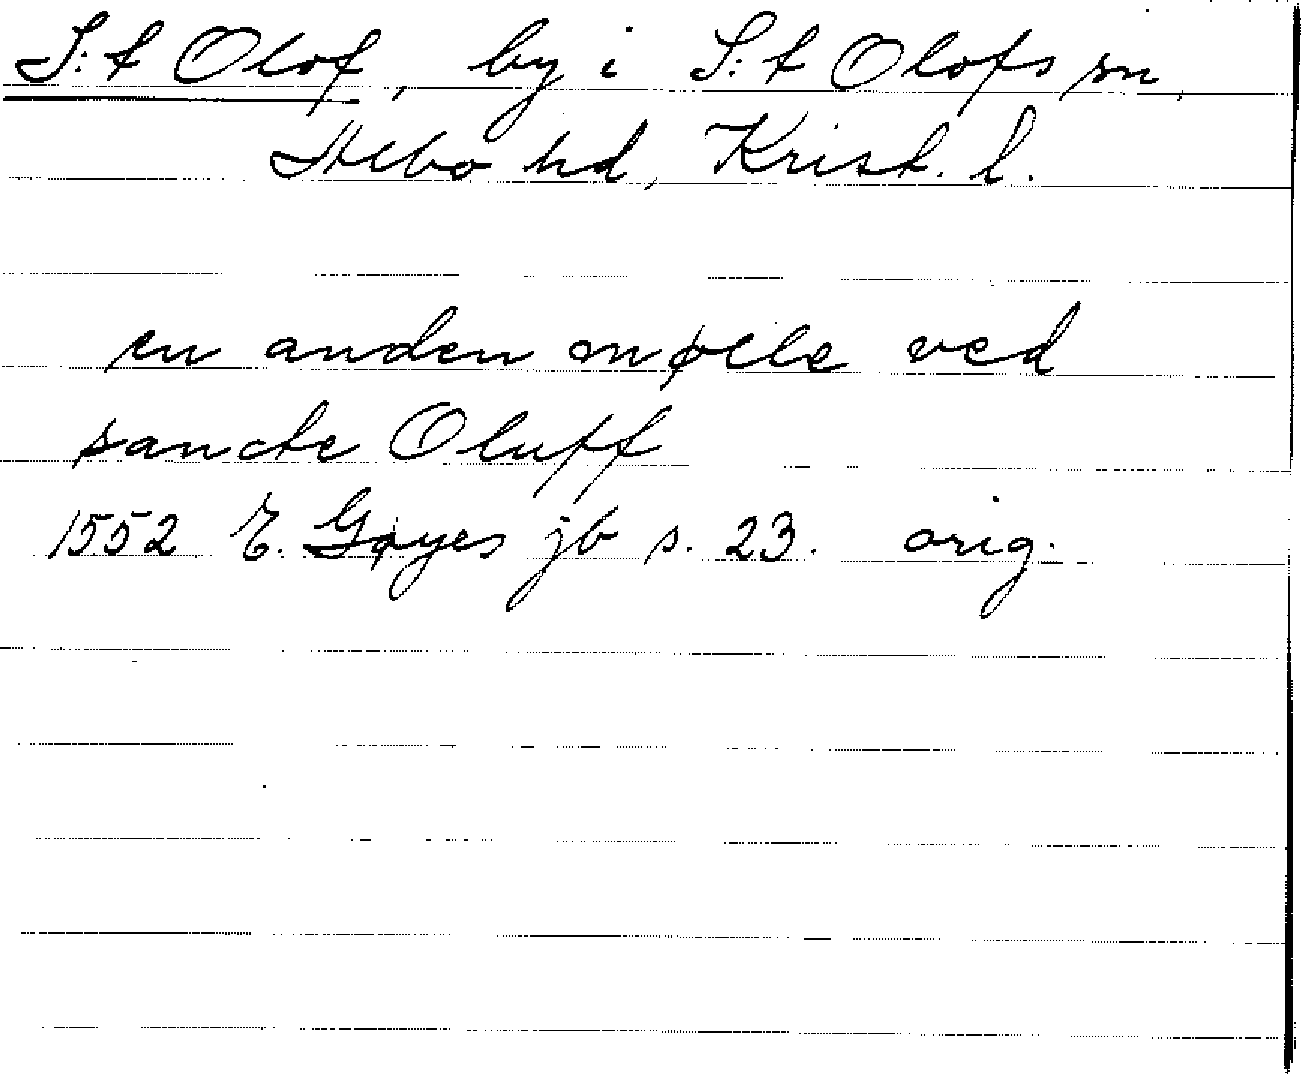 S:t Olof, by i S:t Olofs sn,
Albo hd, Krist. l.
en anden mølle ved
sancte Oluff
1552 E. Gøyes jb s. 23. orig.